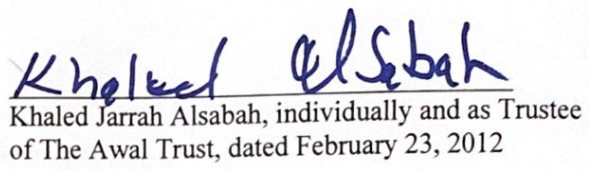 Khaled AlSabah
Khaled Jarrah Alsabah, individually and as Trustee
of The Awal Trust, dated February 23, 2012